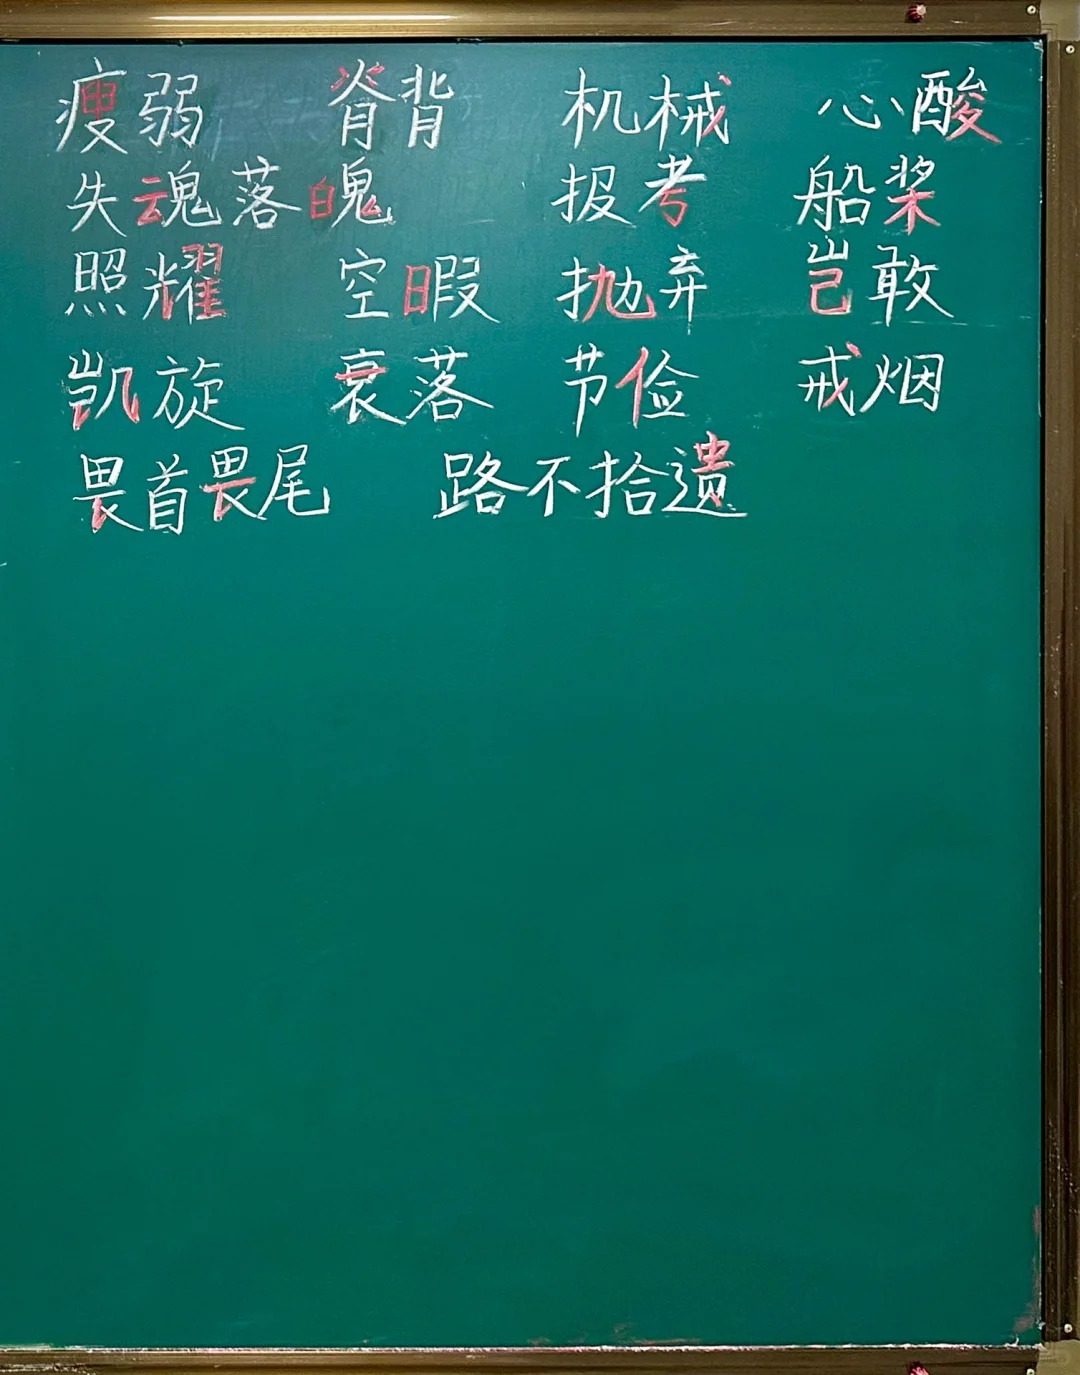 瘦弱 脊背 机械 心酸
失魂落魄 报考 船桨
照耀 空暇 抛弃 岂敢
凯旋 衰落 节俭 戒烟
畏首畏尾 路不拾遗